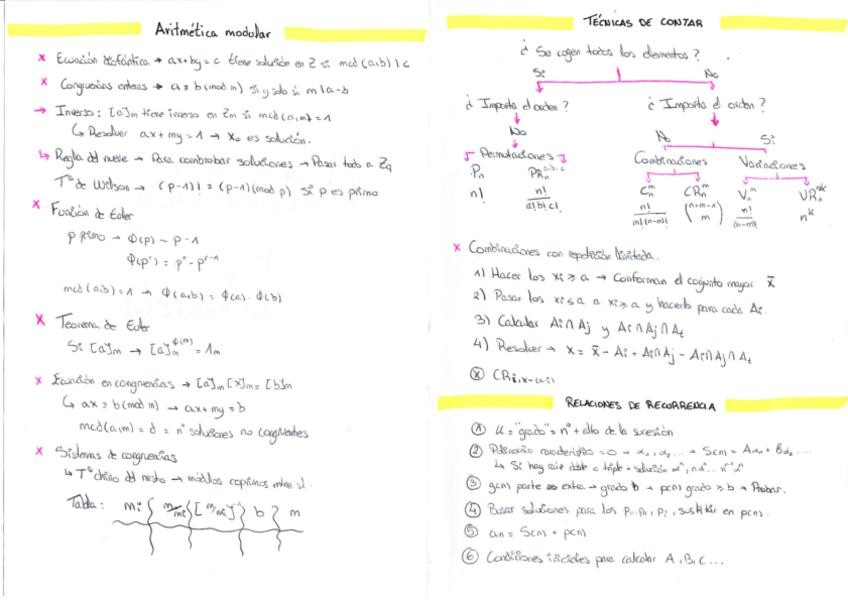 Aritmética modular
x Ecuación diofántica → ax+by=c tiene solución en Z si mcd(a,b) | c
x Congruencias enteros → a ≡ b (mod m) si y solo si m | a-b
→ Inverso: [a]m tiene inverso en Zm si mcd(a,m)=1
↳ Resolver ax+my=1 → x₀ es solución.
↳ Regla del nueve → Para comprobar soluciones → Pasar todo a Z9
Tª de Wilson → (p-1)! ≡ (p-1)(mod p) si p es primo
x Función de Euler
p primo → Φ(p) = p-1
Φ(pʳ) = pʳ - pʳ⁻¹
mcd(a,b)=1 → Φ(a,b) = Φ(a)·Φ(b)
x Teorema de Euler
Si [a]m → [a]m^Φ(m) = 1m
x Ecuación en congruencias → [a]m [x]m = [b]m
↳ ax ≡ b (mod m) → ax+my=b
mcd(a,m) = d = nº soluciones no congruentes
x Sistemas de congruencias
↳ Tª chino del resto → módulos coprimos entre sí.
Tabla: mi m/mi [m/mi]⁻¹ b m
TÉCNICAS DE CONTAR
¿Se cogen todos los elementos?
Si No
¿Importa el orden? ¿Importa el orden?
No No Si
Permutaciones Combinaciones Variaciones
Pn PRn^a,b,c Cn^m CRn^m Vn^m VRn^k
n! n!/a!b!c! n!/m!(n-m)! (n+m-1 m) n!/(n-m)! n^k
x Combinaciones con repetición limitada.
1) Hacer los xi ≥ a → Conforman el conjunto mayor x̄
2) Pasar los xi ≤ a a xi ≥ a y hacerlo para cada Ai.
3) Calcular Ai∩Aj y Ai∩Aj∩At
4) Resolver → x = x̄ - Ai + Ai∩Aj - Ai∩Aj∩At
RELACIONES DE RECURRENCIA
① K = "grado" = nº + alto de la sucesión
② Polinomio característico = 0 → α₁, α₂, ... → S(n) = Aα₁ + Bα₂ ....
③ g(n) parte extra → grado b → p(n) grado ≥ b → Probar.
④ Buscar soluciones para los p₀, p₁, p₂, sustituir en p(n).
⑤ an = S(n) + p(n)
⑥ Condiciones iniciales para calcular A, B, C ...